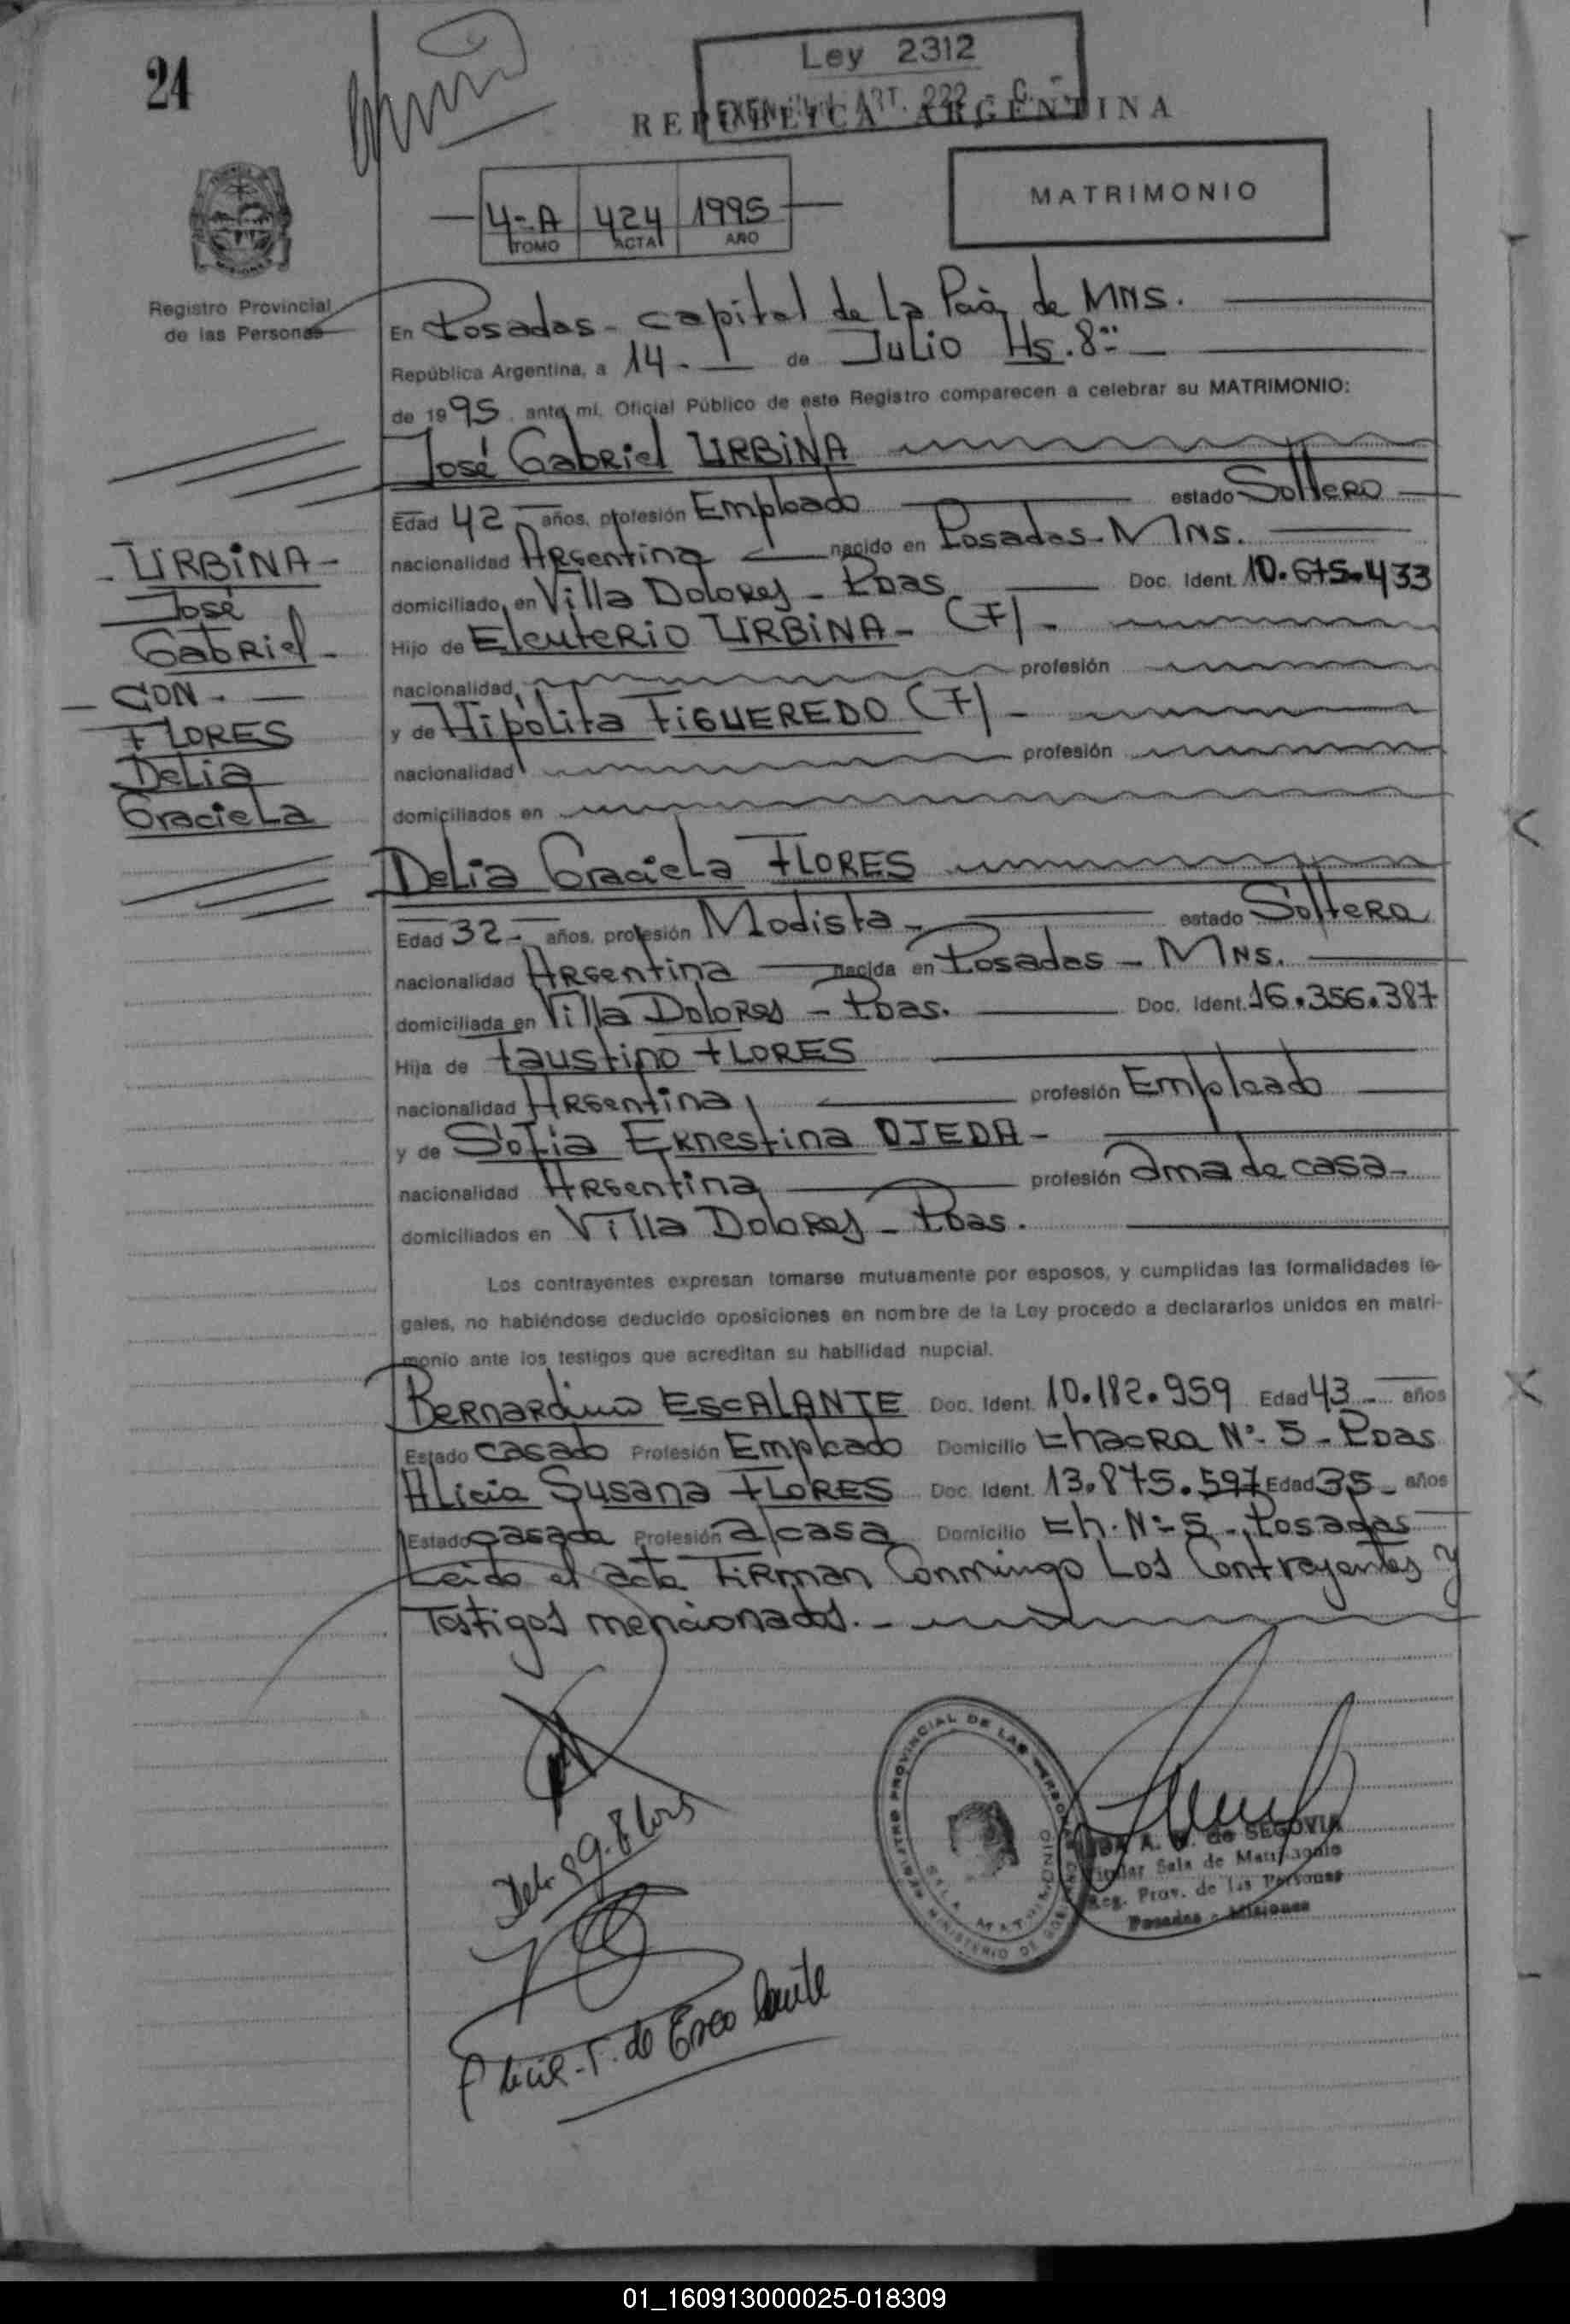 24
Ley 2312
ART. 222
REPUBLICA ARGENTINA
4-A 424 1995
TOMO ACTA AÑO
MATRIMONIO
MISIONES
Registro Provincial
de las Personas
En Posadas - capital de La Pcia de MNS.
República Argentina, a 14 - de Julio Hs. 8
de 1995, ante mí, Oficial Público de este Registro comparecen a celebrar su MATRIMONIO:
José Gabriel URBINA
Edad 42 años, profesión Empleado estado Soltero
nacionalidad Argentina nacido en Posadas - MNS.
domiciliado en Villa Dolores - Pdas Doc. Ident. 10.675.433
Hijo de Eleuterio URBINA - (F) -
nacionalidad profesión
y de Hipólita FIGUEREDO (F) -
nacionalidad profesión
domiciliados en
- URBINA -
José
Gabriel -
- CON -
FLORES
Delia
Graciela
Delia Graciela FLORES
Edad 32 - años, profesión Modista - estado Soltera
nacionalidad Argentina nacida en Posadas - MNS.
domiciliada en Villa Dolores - Pdas. Doc. Ident. 16.356.387
Hija de Faustino FLORES
nacionalidad Argentina profesión Empleado
y de Sofia Ernestina OJEDA -
nacionalidad Argentina profesión ama de casa -
domiciliados en Villa Dolores - Pdas.
Los contrayentes expresan tomarse mutuamente por esposos, y cumplidas las formalidades le-
gales, no habiéndose deducido oposiciones en nombre de la Ley procedo a declararlos unidos en matri-
monio ante los testigos que acreditan su habilidad nupcial.
Bernardino ESCALANTE Doc. Ident. 10.182.959 Edad 43 - años
Estado casado Profesión Empleado Domicilio Chacra Nº 5 - Pdas
Alicia Susana FLORES Doc. Ident. 13.875.597 Edad 35 - años
Estado casada Profesión a/casa Domicilio Ch. Nº 5 - Posadas
Leido el acta Firman Conmingo Los Contrayentes y
Testigos mencionados. -
REGISTRO PROVINCIAL DE LAS PERSONAS
SALA MATRIMONIO
MINISTERIO DE
de SEGOVIA
Titular Sala de Matrimonio
Reg. Prov. de las Personas
Posadas - Misiones
F. de Escalante
01_160913000025-018309